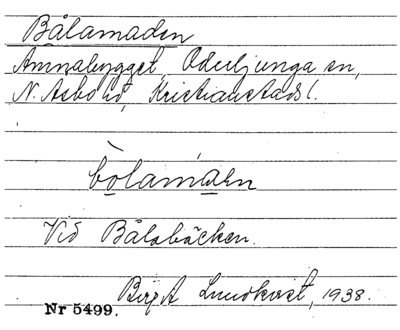 Bålamaden
Ammabygget, Oderljunga sn,
N. Åsbo hd, Kristianstads l.
bòlamáden
Vid Bålabäcken.
Birgit Lundkvist, 1938.
Nr 5499.